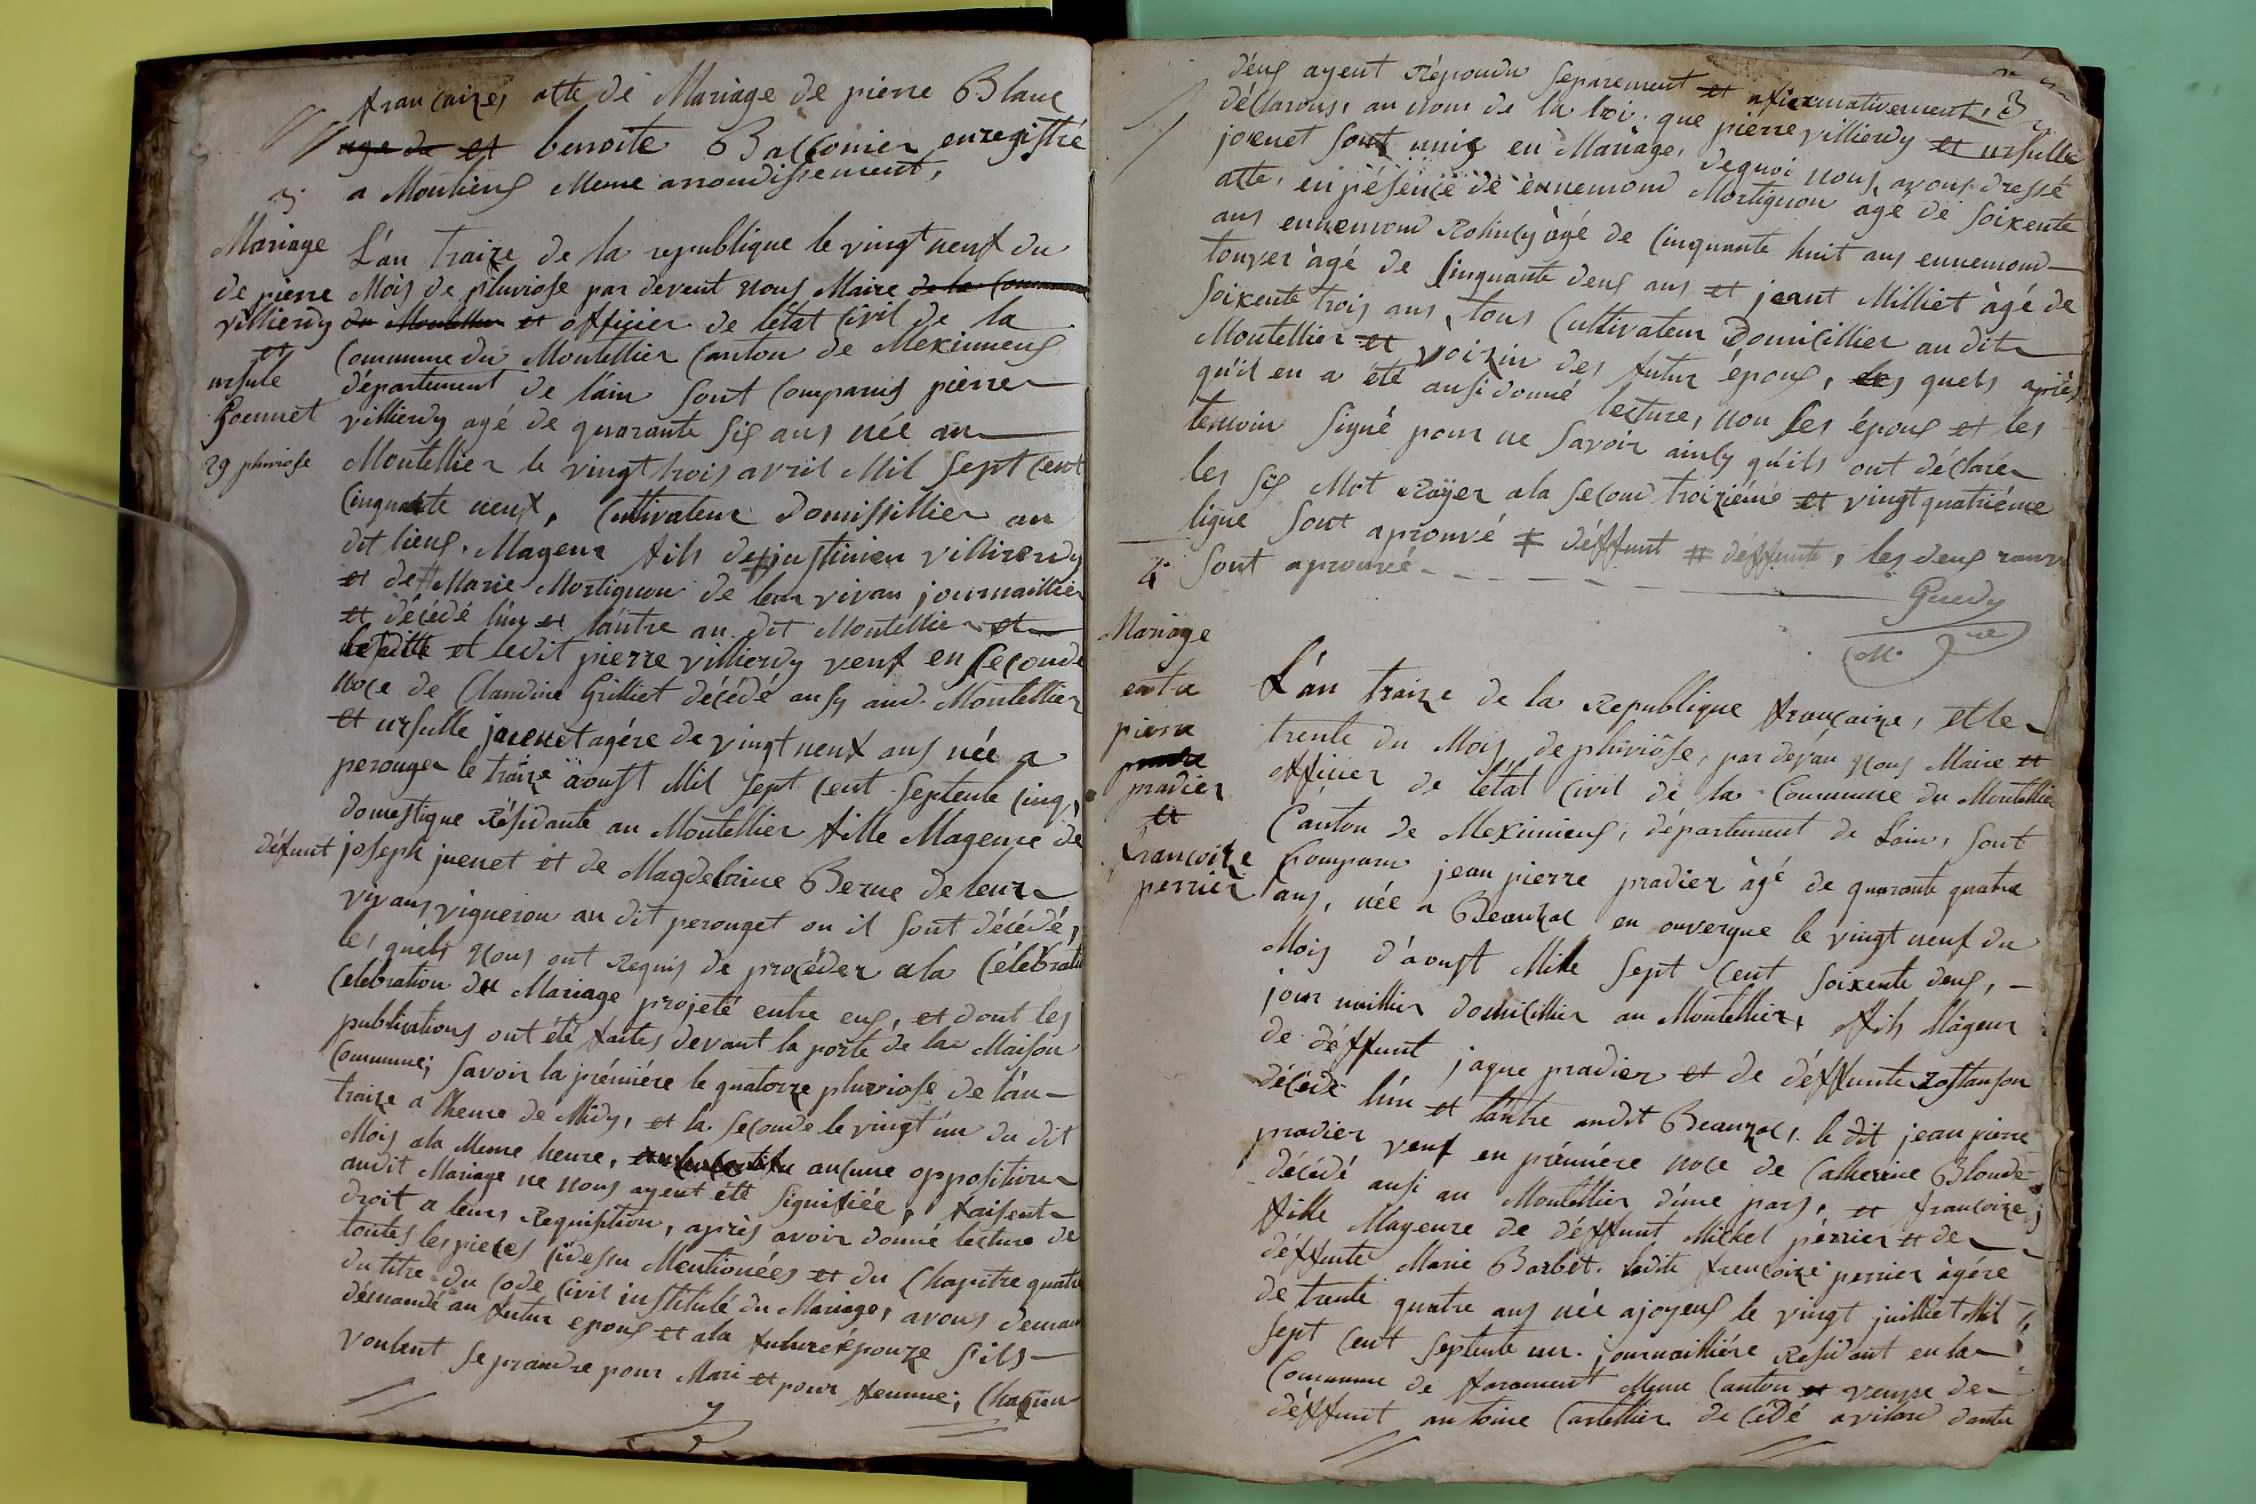 francaize, atte de Mariage de pierre Blanc
age de et benoite Balfonier enregistré
a Moulieng Meme arrondissement,
3
Mariage
de pierre
villierdy
et
ursule
Goennet
29 pluviose
L'an traize de la republique le vingt neuf du
Mois de pluviose par devent nous Maire de la Commune
du Montellier et officier de létat Civil de la
Commune du Montellier Canton de Meximeux
département de l'ain sont Comparus pierre
villierdy agé de quarante six ans née au
Montellier le vingt trois avril Mil sept Cent
Cinquante neuf, Cultivateur domissillier au
dit lieux. Mageur fils de justinien villierdy
et de # Marie Mortignon de leur vivan journaillier
et décédé l'un et l'autre au dit Montellier et
et ledit pierre villierdy veuf en seconde
noce de Claudine Grilliet décédé ausy aud. Montellier
et ursulle joennet agére de vingt neuf ans née a
perouger le traize aoust Mil sept Cent septente Cinq,
domestique Résidante au Montellier fille Mageure de
défunt joseph juenet et de Magdelaine Berne de leur
vivans vigneron au dit perouget ou il sont décédé,
les quels nous ont Requis de procéder ala Célébration
Celebration du Mariage projeté entre eux, et dont les
publications ont été faites devant la porte de la Maison
Commune; savoir la prémiére le quatorze pluviose de l'an
traize a lheure de Midy, et la seconde le vingt un du dit
Mois ala Meme heure, aucune opposition
audit Mariage ne nous ayent été signifiée, faisent
droit a leurs Requisition, après avoir donné lecture de
toutes les pieces cidessu Mentionées et du Chapitre quatre
du titre du Code Civil institulé du Mariage, avons deman
démandé au futur epoux et ala future épouze s'ils
voulent se prandre pour Mari et pour femme; Chaqun
d'eux ayent Répondu séparement et afiermativement,
déclarons, au nom de la loi. que piérre villierdy et ursulle
joennet sont unis en Mariage, dequoi nous avons dressé
atte, en présence de ennemond Mortignon agé de soixente
ans ennemond Rohuly àgé de Cinquante huit ans ennemond
touver àgé de Cinquante deux ans et jeant Milliet àgé de
soixente trois ans, tous Cultivateur Domicillier au dit
Montellier et voizin des futur époux, les quels après
qu'il en a été ausi donné lecture, non les époux et les
temoin signé pour ne savoir ainsy qu'ils ont déclarée
les six Mot Rayer ala second troiziéme et vingt quatriéme
ligne sont aprouvé # déffunt # déffunte, les deux ranvoi
sont aprouvé
Guedy
Mre
4
Mariage
entre
pierre
pradier
et
francoize
perrier
L'an traize de la Republique francaize, et le
trente du Mois de pluviôse, par devan nous Maire et
officier de létat Civil de la Commune du Montellier
Canton de Meximieux, département de L'ain, sont
Comparu jean pierre pradier àgé de quarante quatre
ans, née a Beauzac en ouvergne le vingt neuf du
Mois d'aoust Mille sept Cent soixente deux,
journaillier domicillier au Montellier, fils Mageur
de déffunt jaque pradier et de déffunte Rostanson
décédé l'un et l'autre audit Beauzac. le dit jean pierre
pradier veuf en prémiére noce de Catherine Blonde
décédé ausi au Montellier d'une pars, et francoize
fille Mageure de déffunt Mickel périer et de
déffunte Marie Barbet. ladite francoize perrier àgére
de trente quatre ans née ajoyeux le vingt juilliet Mil
sept Cent septente un. journailliére Résidant en la
Commune de faramant Meme Canton et veuve de
déffunt antoine Cartellier décédé avilard dantu